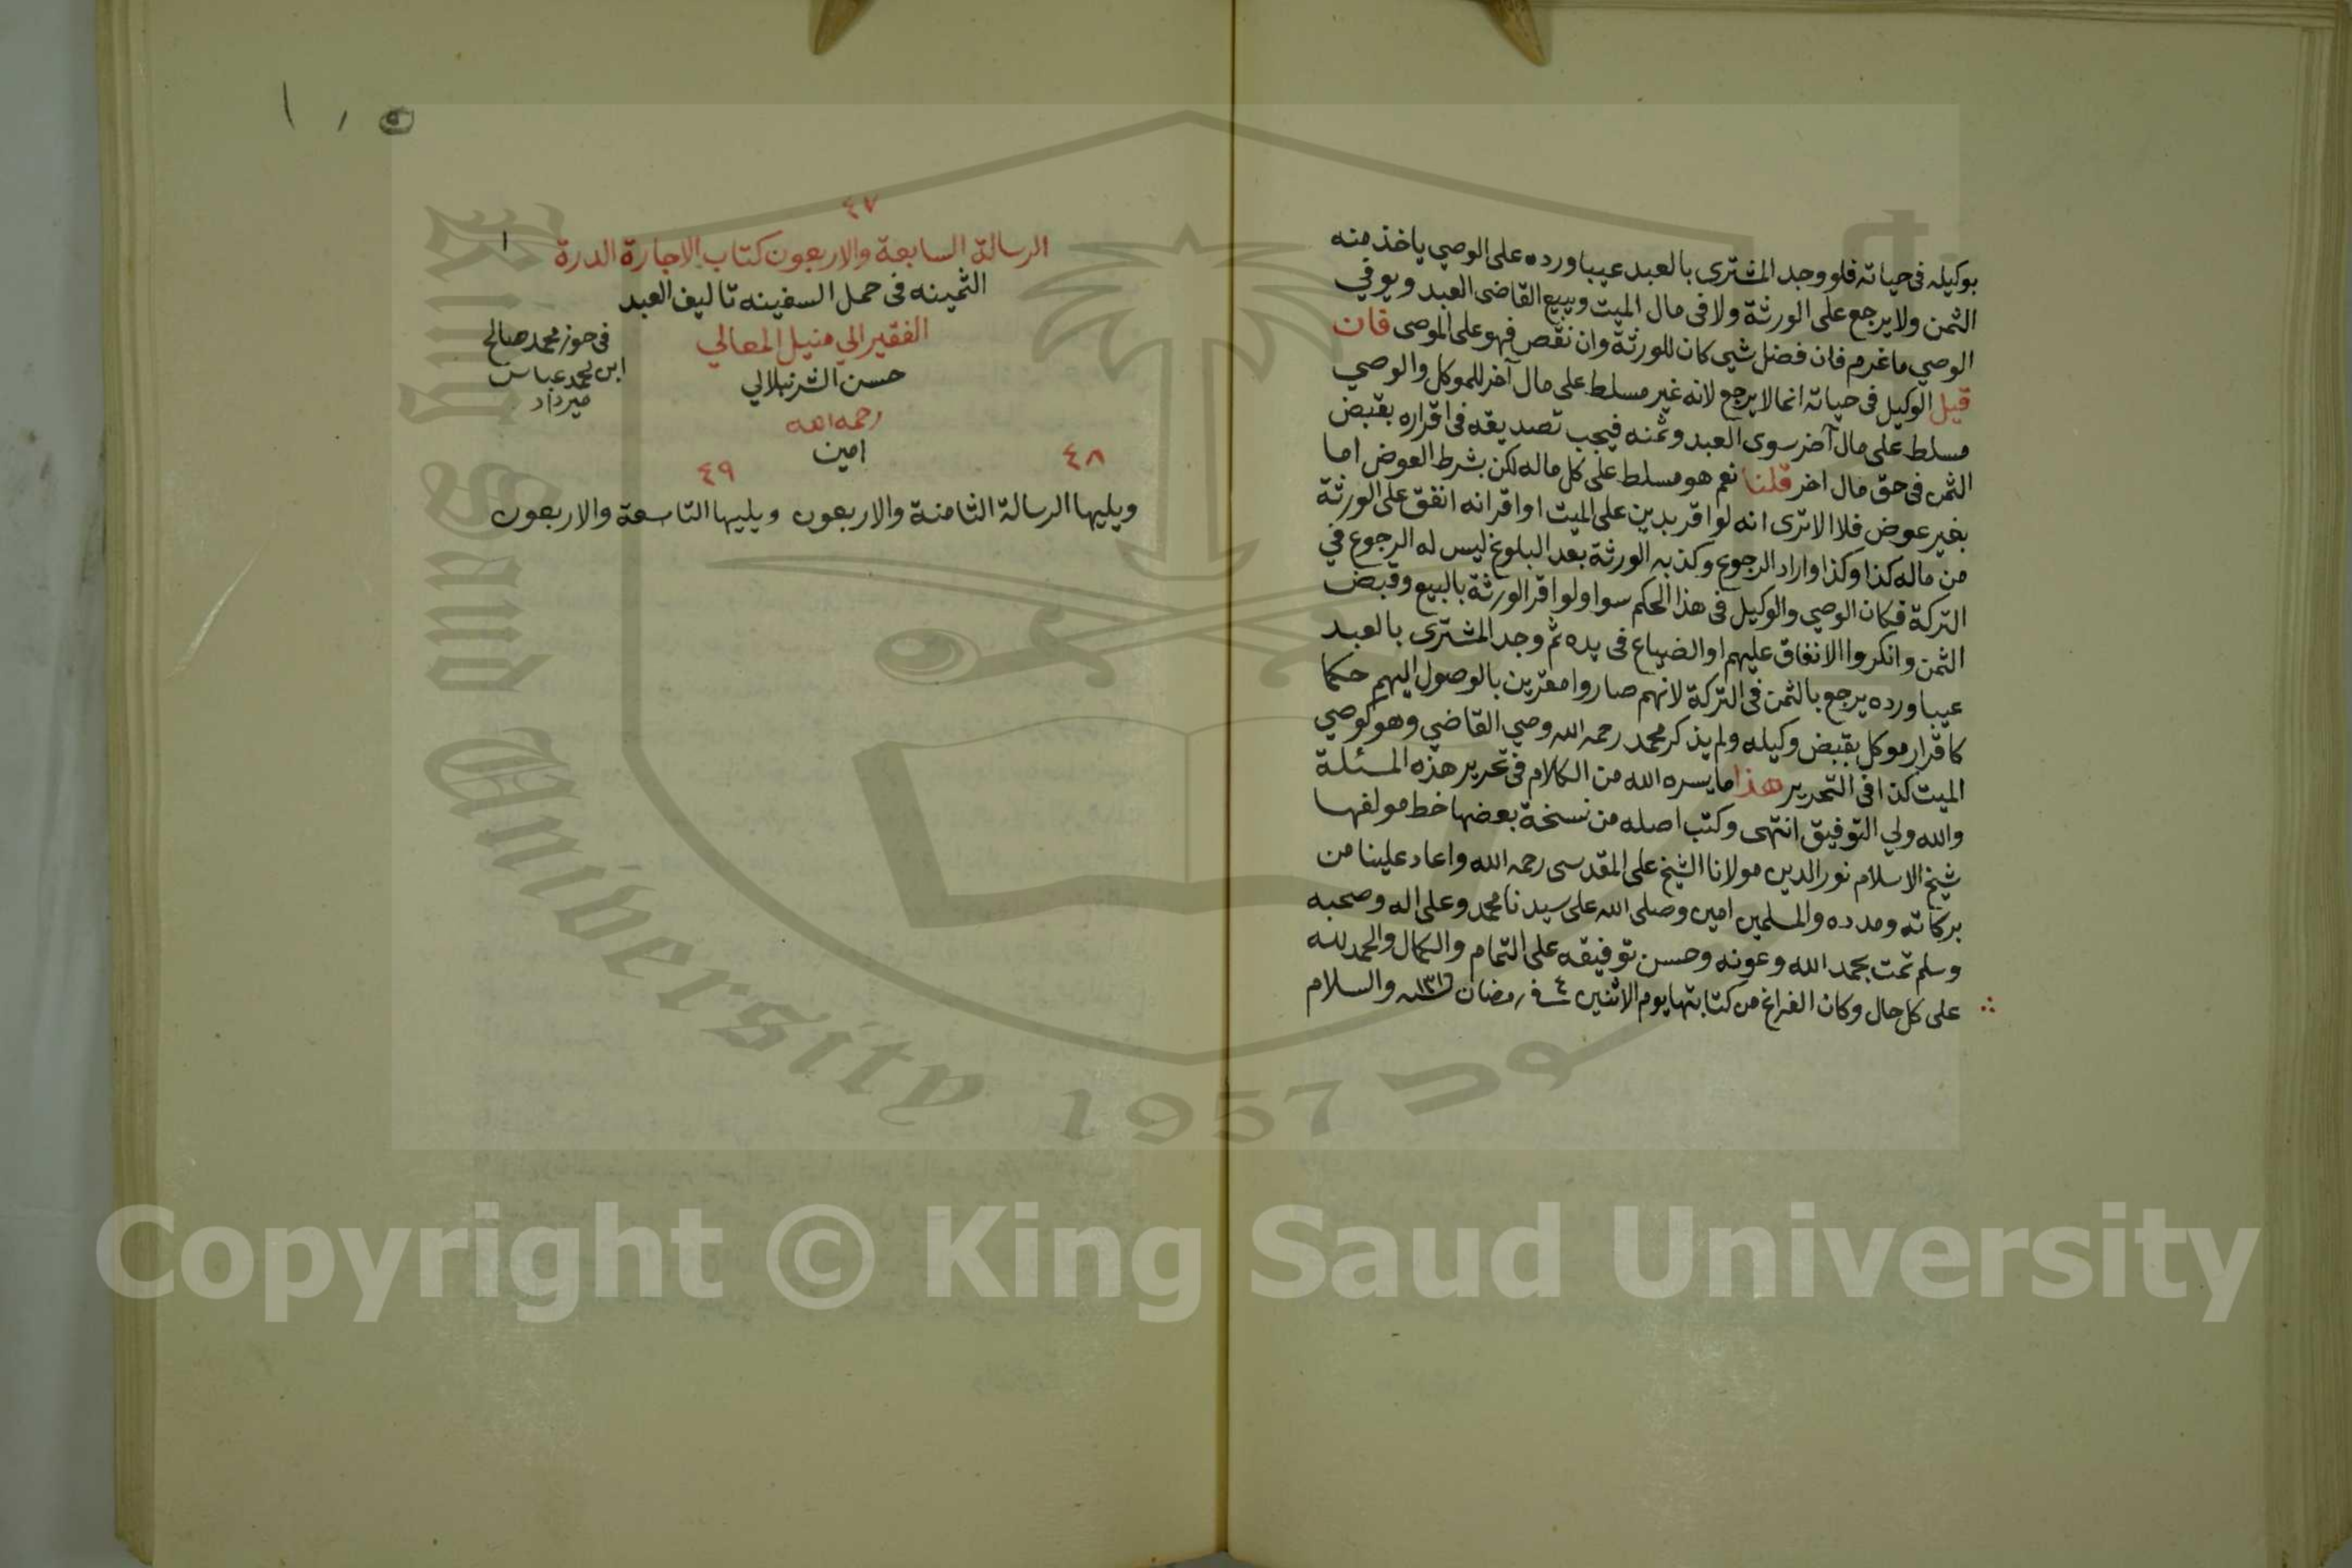 بوكيله فى حياته فلو وجد المشترى بالعبد عيبا ورده على الوصي ياخذ منه
الثمن ولا يرجع على الورثة ولا فى مال الميت ويبيع القاضى العبد ويوفي
الوصي ما غرم فان فضل شي كان للورثة وان نقص فهو على الموصى فان
قيل الوكيل فى حياته انما لا يرجع لانه غير مسلط على مال آخر للموكل والوصي
مسلط على مال آخر سوى العبد وثمنه فيجب تصديقه فى اقراره بقبض
الثمن فى حق مال اخر قلنا نعم هو مسلط على كل ماله لكن بشرط العوض اما
بغير عوض فلا الا ترى انه لو اقر بدين على الميت او اقر انه انفق على الورثة
من ماله كذا وكذا واراد الرجوع وكذبه الورثة بعد البلوغ ليس له الرجوع في
التركة فكان الوصي والوكيل فى هذا الحكم سوا ولو اقر الورثة بالبيع وقبض
الثمن وانكروا الانفاق عليهم او الضياع فى يده ثم وجد المشترى بالعبد
عيبا ورده يرجع بالثمن فى التركة لانهم صاروا مقرين بالوصول اليهم حكما
كاقرار موكل بقبض وكيله ولم يذكر محمد رحمه الله وصي القاضي وهو كوصي
الميت كذا فى التحرير هذا ما يسره الله من الكلام فى تحرير هذه المسئلة
والله ولي التوفيق انتهى وكتب اصله من نسخة بعضها خط مولفها
شيخ الاسلام نور الدين مولانا الشيخ على المقدسى رحمه الله واعاد علينا من
بركاته ومدده والمسلمين امين وصلى الله على سيدنا محمد وعلى اله وصحبه
وسلم تمت بحمد الله وعونه وحسن توفيقه على التمام والكمال والحمد لله
على كل حال وكان الفراغ من كتابتها يوم الاثنين ٤ فى رمضان والسلام
٤٧
الرسالة السابعة والاربعون كتاب الاجارة الدرة ١
الثمينه فى حمل السفينه تاليف العبد
الفقير الي منيل المعالي
حسن الشرنبلالي
رحمه الله
امين
فى حوز محمد صالح
ابن محمد عباس
ميرداد
٤٨ ٤٩
ويليها الرسالة الثامنة والاربعون ويليها التاسعة والاربعون
King Saud University 1957
Copyright © King Saud University